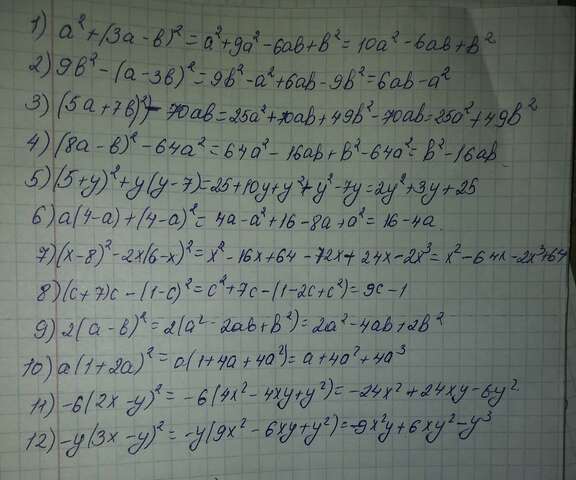 1) a² + (3a - b)² = a² + 9a² - 6ab + b² = 10a² - 6ab + b²
2) 9b² - (a - 3b)² = 9b² - a² + 6ab - 9b² = 6ab - a²
3) (5a + 7b)² - 70ab = 25a² + 70ab + 49b² - 70ab = 25a² + 49b²
4) (8a - b)² - 64a² = 64a² - 16ab + b² - 64a² = b² - 16ab
5) (5 + y)² + y(y - 7) = 25 + 10y + y² + y² - 7y = 2y² + 3y + 25
6) a(4 - a) + (4 - a)² = 4a - a² + 16 - 8a + a² = 16 - 4a
7) (x - 8)² - 2x(6 - x)² = x² - 16x + 64 - 72x + 24x - 2x³ = x² - 64x - 2x³ + 64
8) (c + 7)c - (1 - c)² = c² + 7c - (1 - 2c + c²) = 9c - 1
9) 2(a - b)² = 2(a² - 2ab + b²) = 2a² - 4ab + 2b²
10) a(1 + 2a)² = a(1 + 4a + 4a²) = a + 4a² + 4a³
11) -6(2x - y)² = -6(4x² - 4xy + y²) = -24x² + 24xy - 6y²
12) -y(3x - y)² = -y(9x² - 6xy + y²) = -9x²y + 6xy² - y³